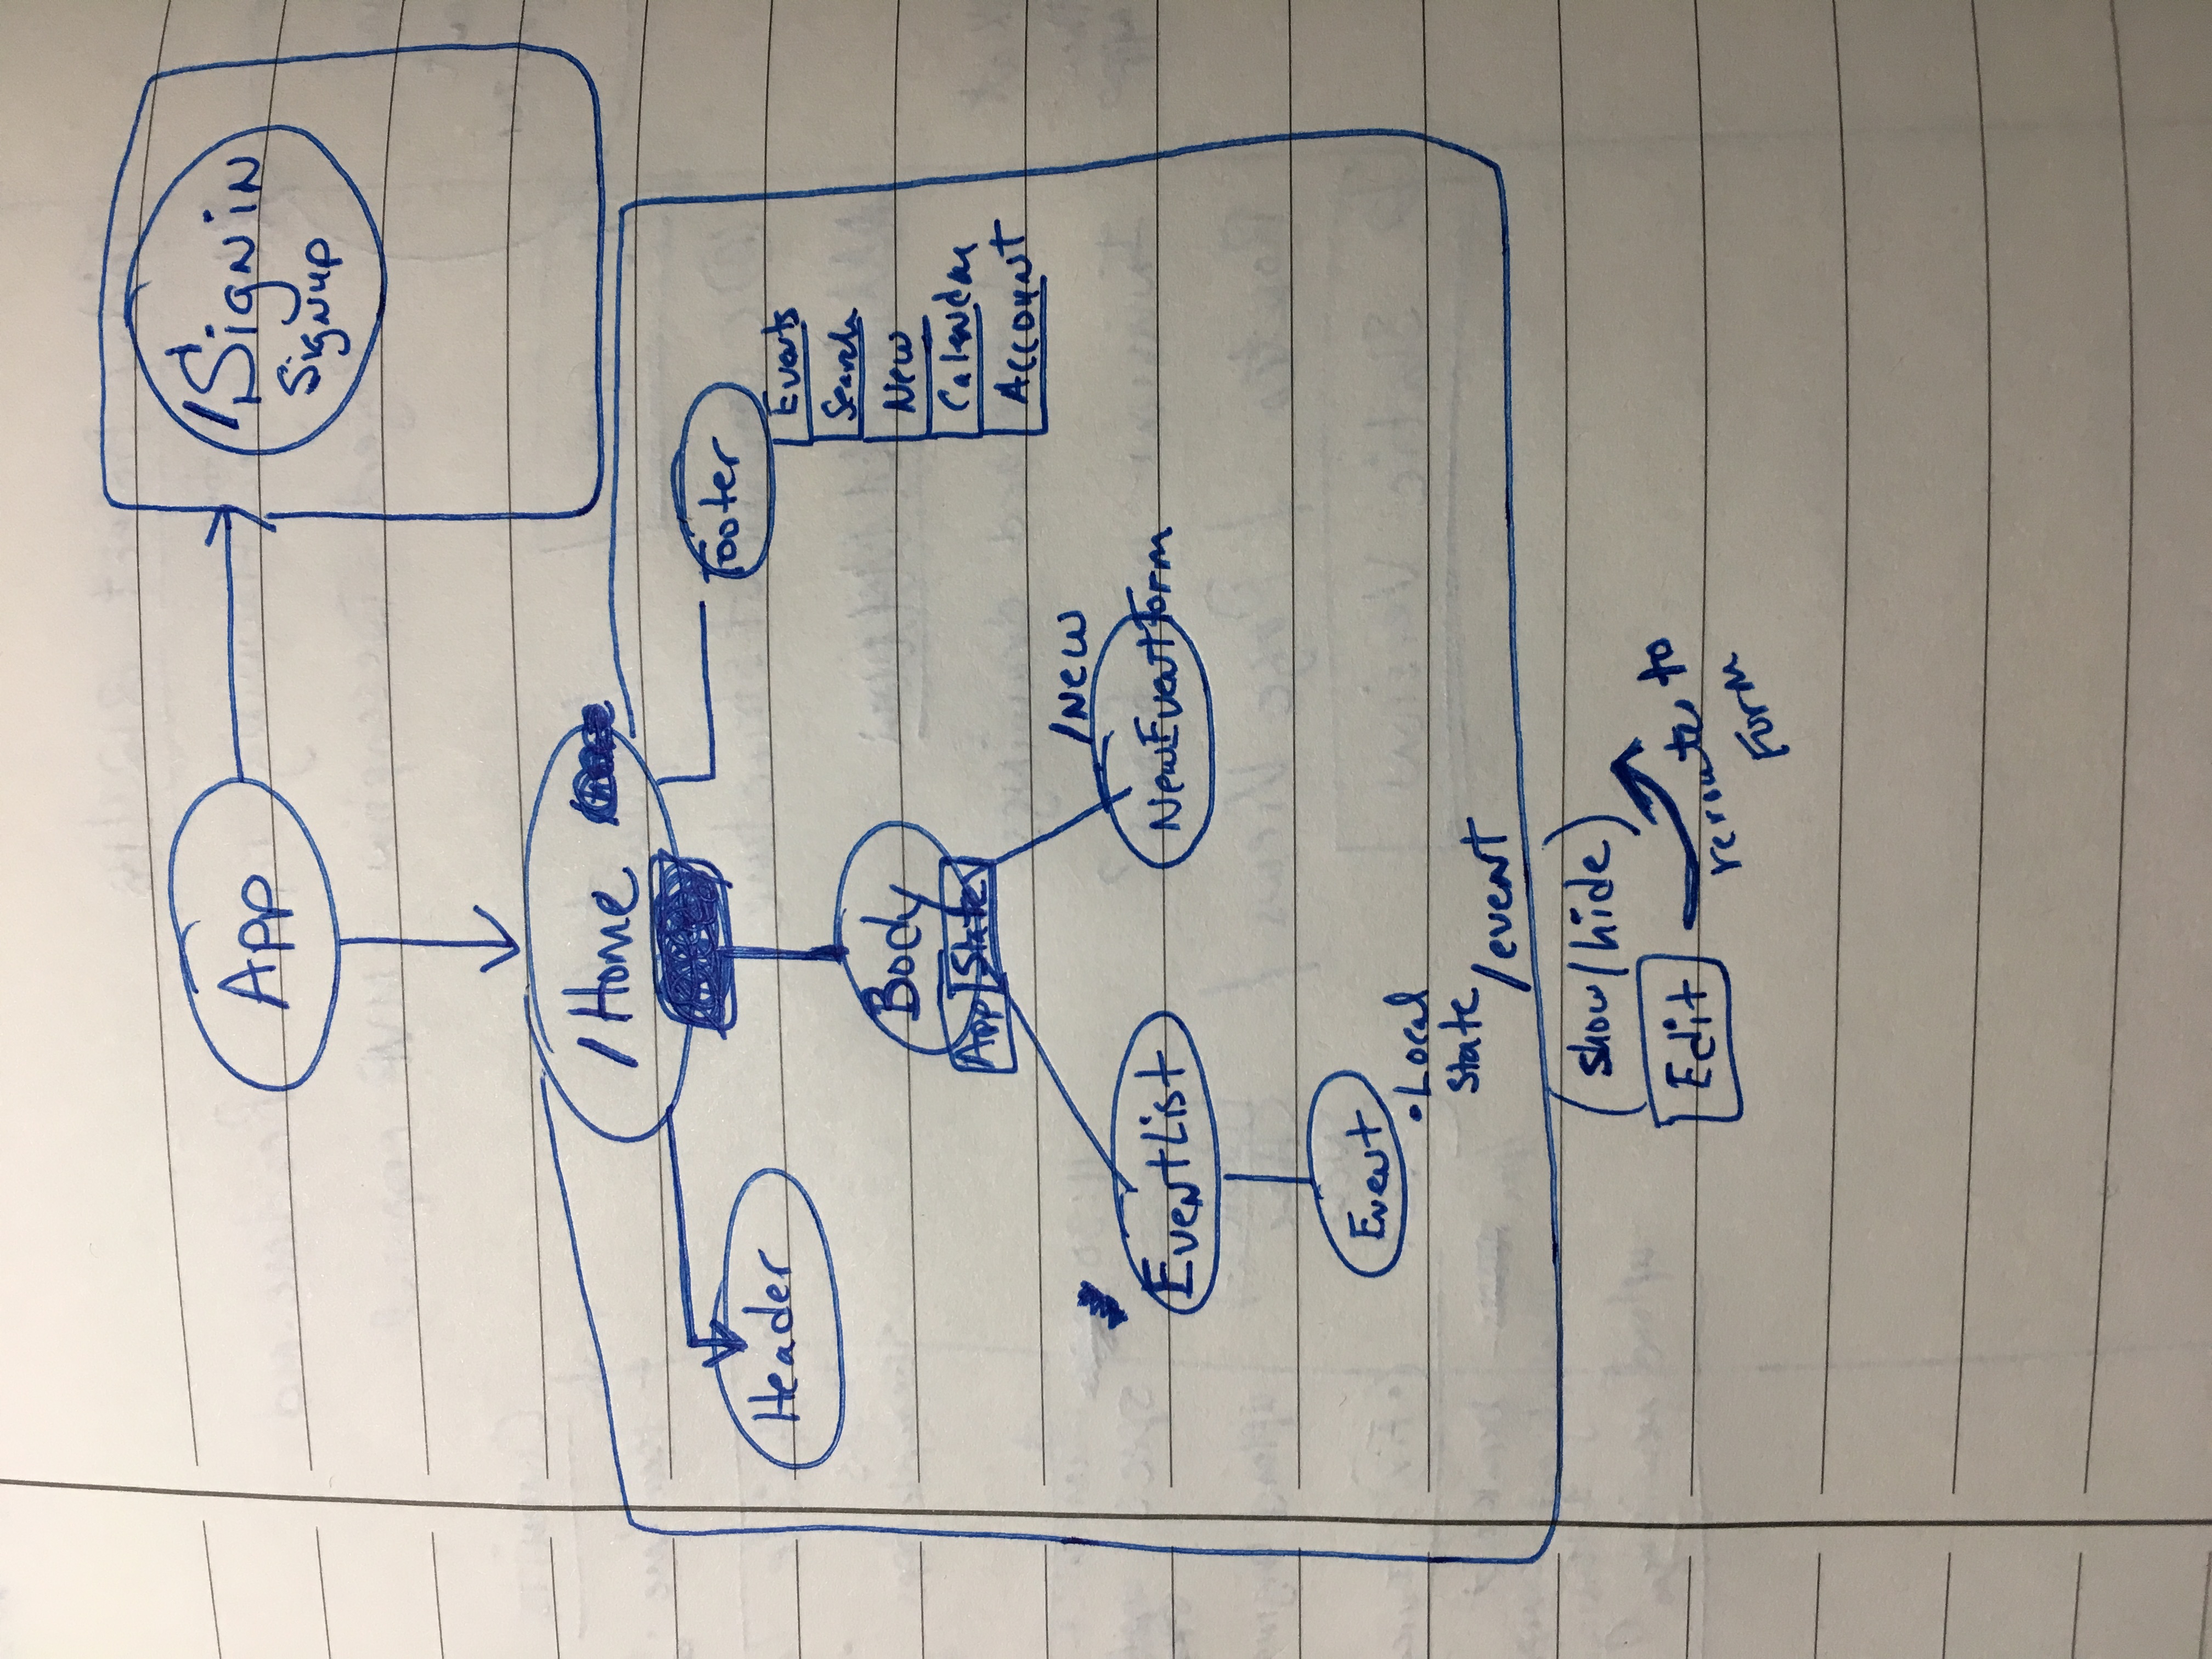 App
/Signin
Signup
/Home
Header
Footer
Events
Search
New
Calendar
Account
Body
App State
/New
EventList
NewEventForm
Event
• Local
State
/event
(show/hide)
Edit
reroutes to
Form